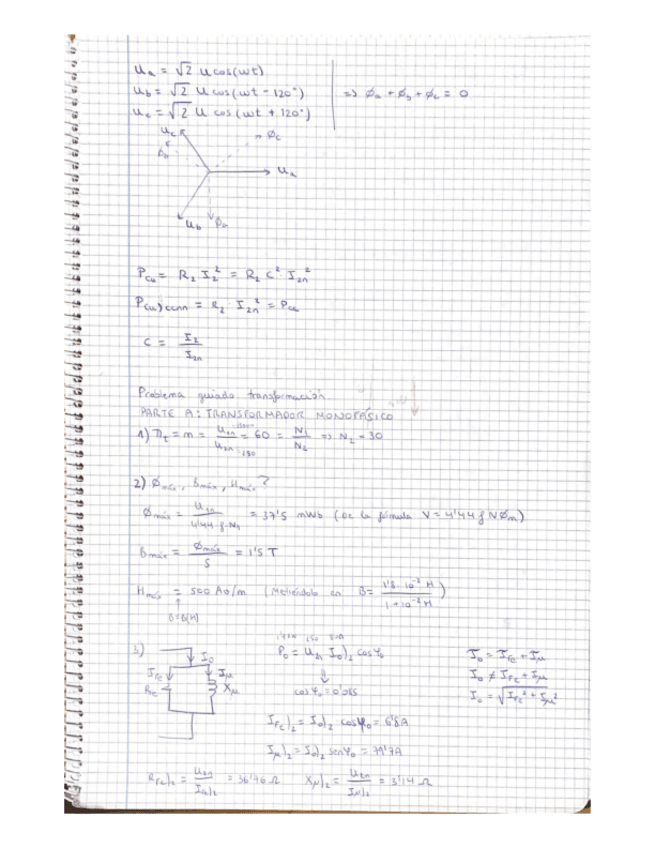 Ua = √2 U cos(ωt)
Ub = √2 U cos(ωt - 120°) => ϕa + ϕb + ϕc = 0
Uc = √2 U cos(ωt + 120°)
Uc ϕc
ϕb
Ua
Ub ϕa
Pcu = R2 I2² = R2 C² · I2n²
Pcu)conn = R2 · I2n² = Pcc
C = I2 / I2n
Problema guiado transformación
PARTE A: TRANSFORMADOR MONOFÁSICO
1) rt = m = U1n / U2n = 60 = N1 / N2 => N2 = 30
2) ϕmáx, Bmáx, Hmáx?
ϕmáx = U1n / 4'44·f·N1 = 37'5 mWb (De la fórmula V = 4'44 f N ϕm)
Bmáx = ϕmáx / S = 1'5 T
Hmáx = 500 Av/m (Metiéndolo en B = 1'8·10⁻² H / 1+10⁻² H)
B=B(H)
3) I0 P0 = U2n I0)2 cos φ0 I0 = IFe + Iμ
IFe Iμ I0 ≠ IFe + Iμ
RFe Xμ cos φ0 = 0'085 I0 = √IFe² + Iμ²
IFe)2 = I0)2 cos φ0 = 6'8A
Iμ)2 = I0)2 sen φ0 = 79'7A
RFe)2 = U2n / IFe)2 = 36'76 Ω Xμ)2 = U2n / Iμ)2 = 3'14 Ω